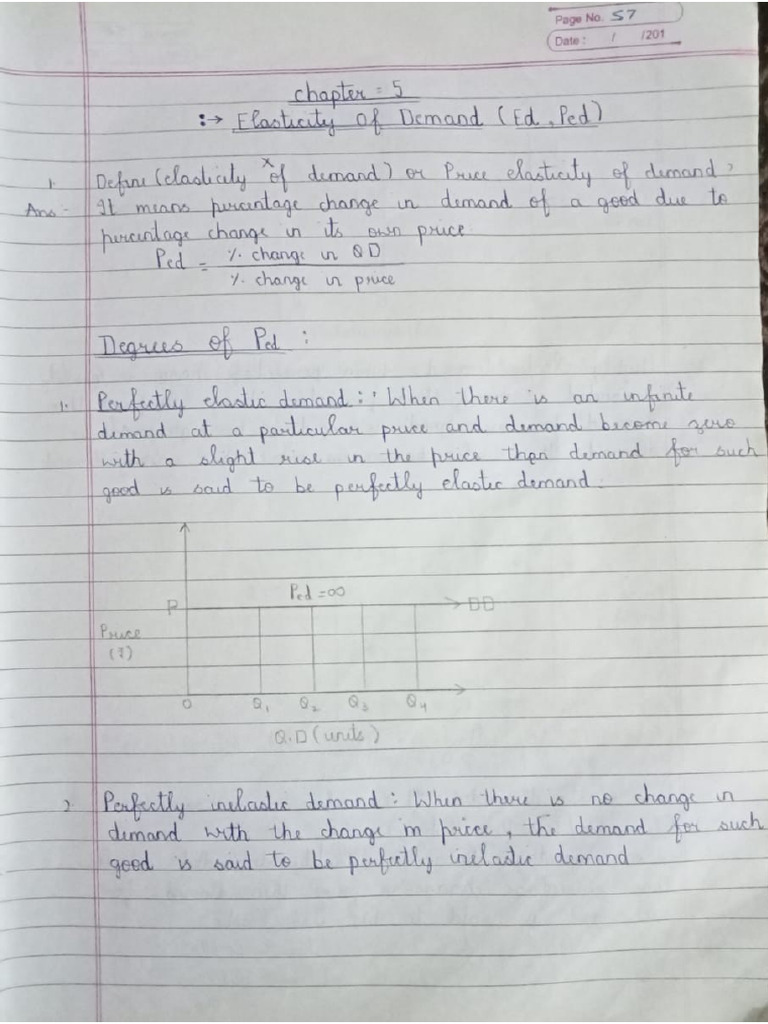 Page No. 57
Date: / /201
Chapter = 5
:→ Elasticity of Demand (Ed, Ped)
1. Define (elasticity of demand) or Price elasticity of demand?
Ans - It means percentage change in demand of a good due to
percentage change in its own price
Ped = % change in QD
% change in price
Degrees of Ped :
1. Perfectly elastic demand : When there is an infinite
demand at a particular price and demand become zero
with a slight rise in the price than demand for such
good is said to be perfectly elastic demand.
Ped = ∞
P DD
Price
(₹)
O Q1 Q2 Q3 Q4
Q.D (units)
2 Perfectly inelastic demand : When there is no change in
demand with the change in price, the demand for such
good is said to be perfectly inelastic demand